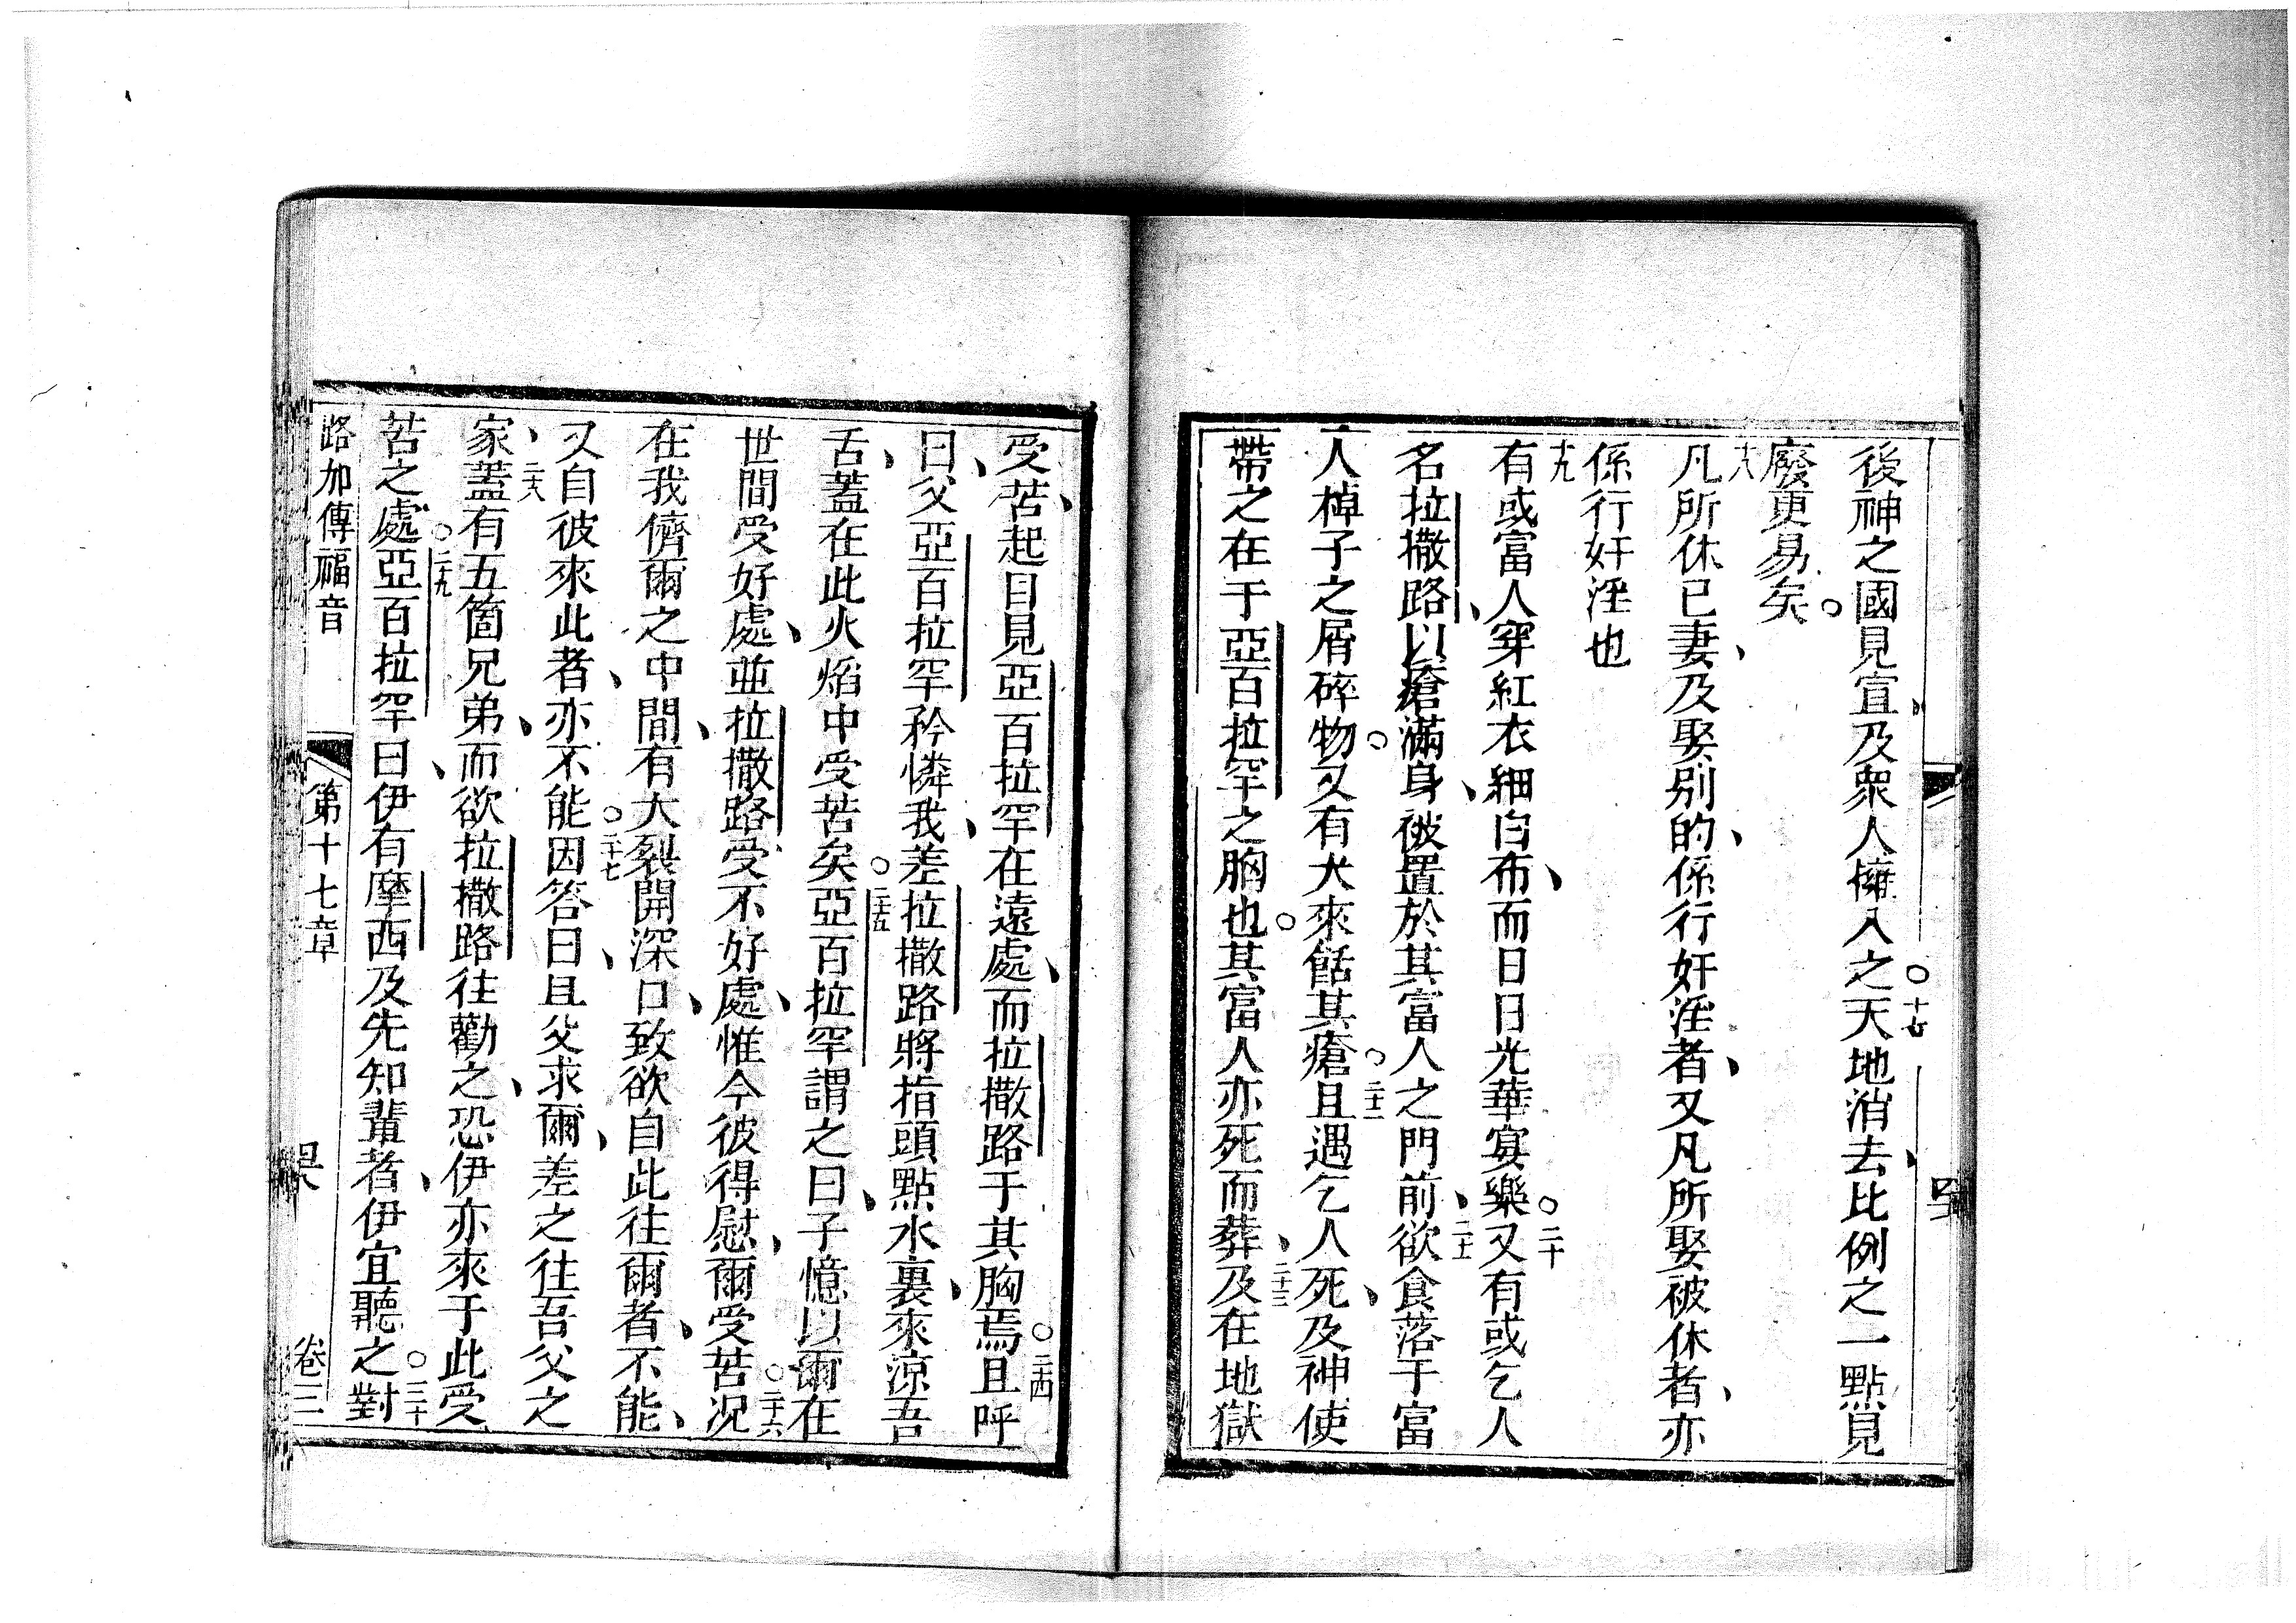 後神之國見宣、及衆人擁入之、○十七天地消去、比例之一點見
廢更易矣。
十八凡所休已妻、及娶別的、係行奸淫者、又凡所娶被休者、亦
係行奸淫也
十九有或富人穿紅衣細白布、而日日光華宴樂。○二十又有或乞人
名拉撒路、以瘡滿身、被置於其富人之門前、二十一欲食落于富
人棹子之屑碎物。又有犬來餂其瘡。○二十二且遇乞人死、及神使
帶之在于亞百拉罕之胸也。其富人亦死而葬、二十三及在地獄
受苦、起目見亞百拉罕在遠處、而拉撒路于其胸焉。○二十四且呼
曰、父亞百拉罕矜憐我、差拉撒路將指頭點水裏、來涼吾
舌、蓋在此火焰中受苦矣。○二十五亞百拉罕謂之曰、子憶以爾在
世間受好處、並拉撒路受不好處、惟今彼得慰、爾受苦。○二十六况
在我儕爾之中間、有大裂開深口、致欲自此往爾者、不能、
又自彼來此者、亦不能。○二十七因答曰、且父求爾、差之往吾父之
家、二十八蓋有五箇兄弟、而欲拉撒路往勸之、恐伊亦來于此受
苦之處。○二十九亞百拉罕曰、伊有摩西及先知輩者、伊宜聽之。○三十對
路加傳福音 第十七章 卷三